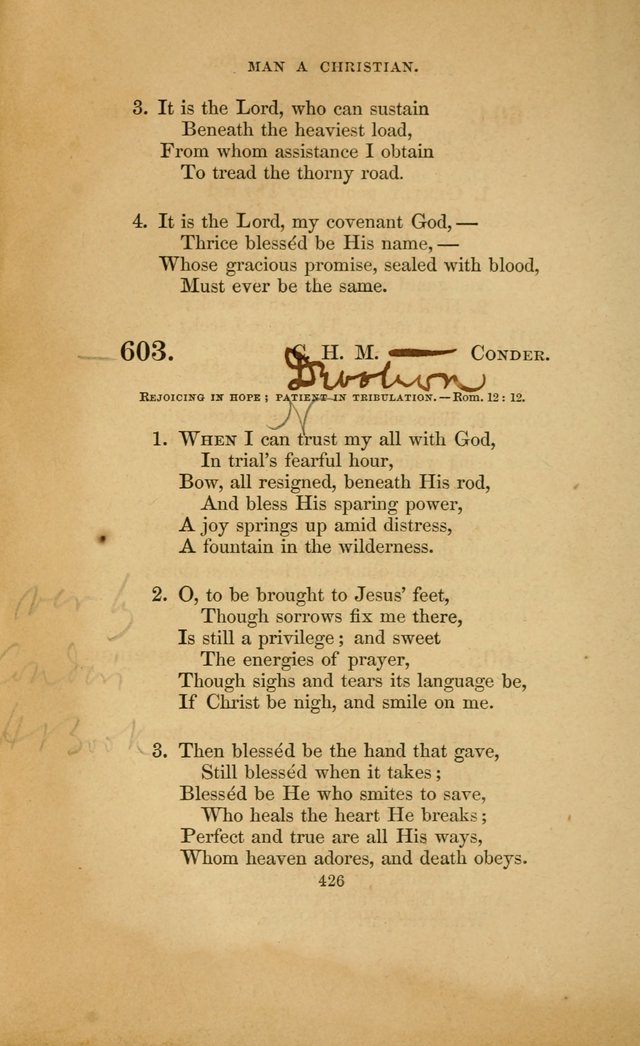 MAN A CHRISTIAN.
3. It is the Lord, who can sustain
Beneath the heaviest load,
From whom assistance I obtain
To tread the thorny road.
4. It is the Lord, my covenant God,—
Thrice blesséd be His name,—
Whose gracious promise, sealed with blood,
Must ever be the same.
603. C. H. M. CONDER.
Devotion
REJOICING IN HOPE; PATIENT IN TRIBULATION.—Rom. 12: 12.
N
1. WHEN I can trust my all with God,
In trial's fearful hour,
Bow, all resigned, beneath His rod,
And bless His sparing power,
A joy springs up amid distress,
A fountain in the wilderness.
2. O, to be brought to Jesus' feet,
Though sorrows fix me there,
Is still a privilege; and sweet
The energies of prayer,
Though sighs and tears its language be,
If Christ be nigh, and smile on me.
ver by
Conder's
H Book
3. Then blesséd be the hand that gave,
Still blesséd when it takes;
Blesséd be He who smites to save,
Who heals the heart He breaks;
Perfect and true are all His ways,
Whom heaven adores, and death obeys.
426